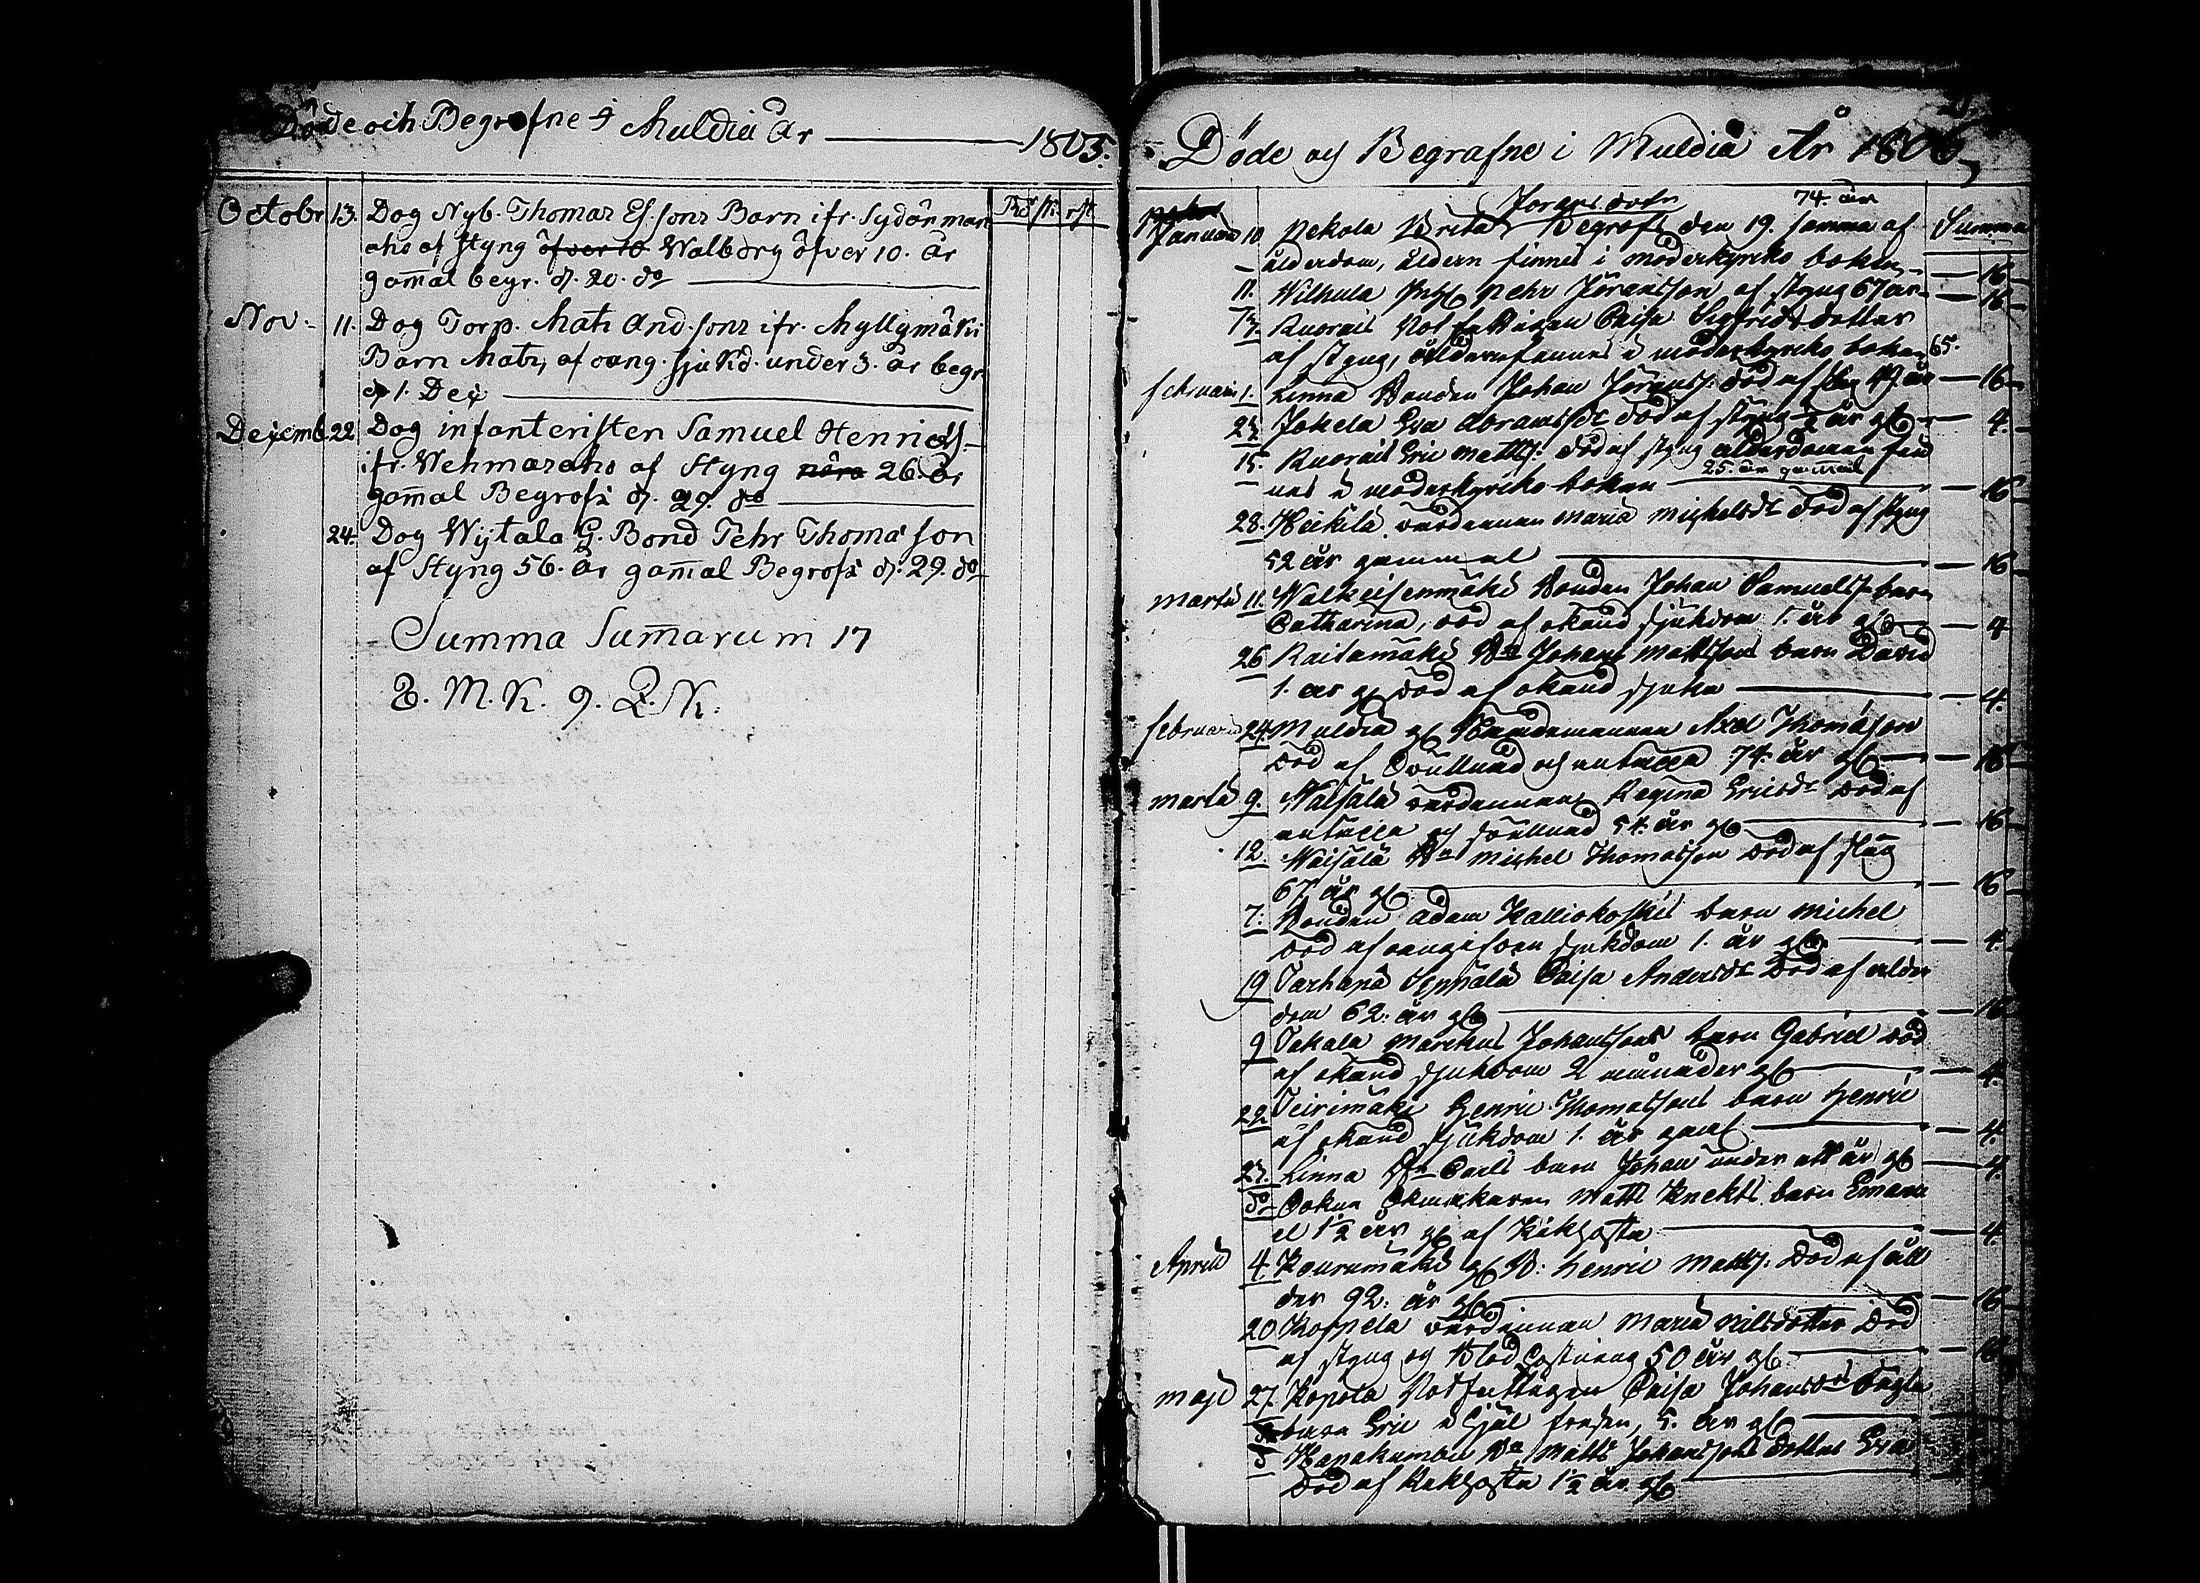 Döde och Begrafne i Muldia År 1805.
Rdr sk. rst
Octobr 13. Dog Nyb. Thomas Es.sons Barn ifr. Sydänmaan
aho af Styng öfver 10 Walborg öfver 10. år
gam̄al begr. d. 20. do
Nov. 11. Dog Torp. Mats And.sons ifr. Myllymäki
Barn Mats, af oang. sjukd. under 3. år begr.
d. 1. Dec
Decemb. 22. Dog infanteristen Samuel Henricss.
ifr. Wehmasaho af Styng nära 26. år
gam̄al Begrofs d. 29. do
24. Dog Wÿtala G. Bond Pehr Thomasson
af Styng 56. år gam̄al Begrofs d. 29. do
Summa Sum̄arum 17
8. M.K. 9. Q.K.
Döde och Begrafne i Muldia År 1806
Summa
Jöransdotr 74. år
Januari 10. Pekola Brita Begrofs den 19. samma af
ålderdom, åldern finnes i moderkyrko boken 16
11. Wilhula Pehr Jöransson af styng 67 år 16
Ruorais Caisa Sigfridsdotter
af styng, åldern finnes i moderkyrko boken 65.
Februari 1. Linna Bonden Johan Jöranss. död af år 16
Jokela Eva Abramsdr död af styng ½ år gl 4.
15. Ruorais Eric Matts. död af styng ålderdomen fin
nes i moderkyrko boken 25. år gammal 16
28. Heikilä värdinnan Maria Michelsdr död af styng
52 år gammal 16
Martii 11. Walkeisenmäki Bonden Johan Samuelss barn
Catharina, död af okänd sjukdom 1. år gl 4
26 Raitamäki Bn Johans Mattssons barn David
1. år gl död af okänd sjuka 4.
Februarii 24 Muldia gl Nämdemannen Axel Thomasson
död af och 74. år gl 16
Martii 9. Waisala värdinnan Regina Ericsdr död af
och 54. år gl 16
12. Waisala Bn Michel Thomasson död af styng
67. år gl 16
7. Bonden Adam Kalliokoskis barn Michel
död af oangifven sjukdom 1. år gl. 4
19 Tarhapä Caisa Andersdr död af ålder
dom 62. år gl 16
9 Takala Marckus Johanssons barn Gabriel död
af okänd sjukdom 2 månader gl 4.
22 Teirimäki Henric Thomassons barn Henric
af okänd sjukdom 1. år gaml 4.
Linna Bn Carls barn Johan under ett år gl 4.
do Matts Knekts barn Emanu
el 1½ år gl af Kikhosta 4.
April 4. Kourumäki gl B: Henric Matts. död af ål
der 92. år gl 16
20 Koppela värdinnan Maria Nilsdotter död
af styng och Blod 50 år gl. 16
Maji 27. Caisa Johansdr
barn Eric 5. år gl
Hapakumbu Bn Matts Johanssons dotter Eva
död af Kikhosta 1½ år gl